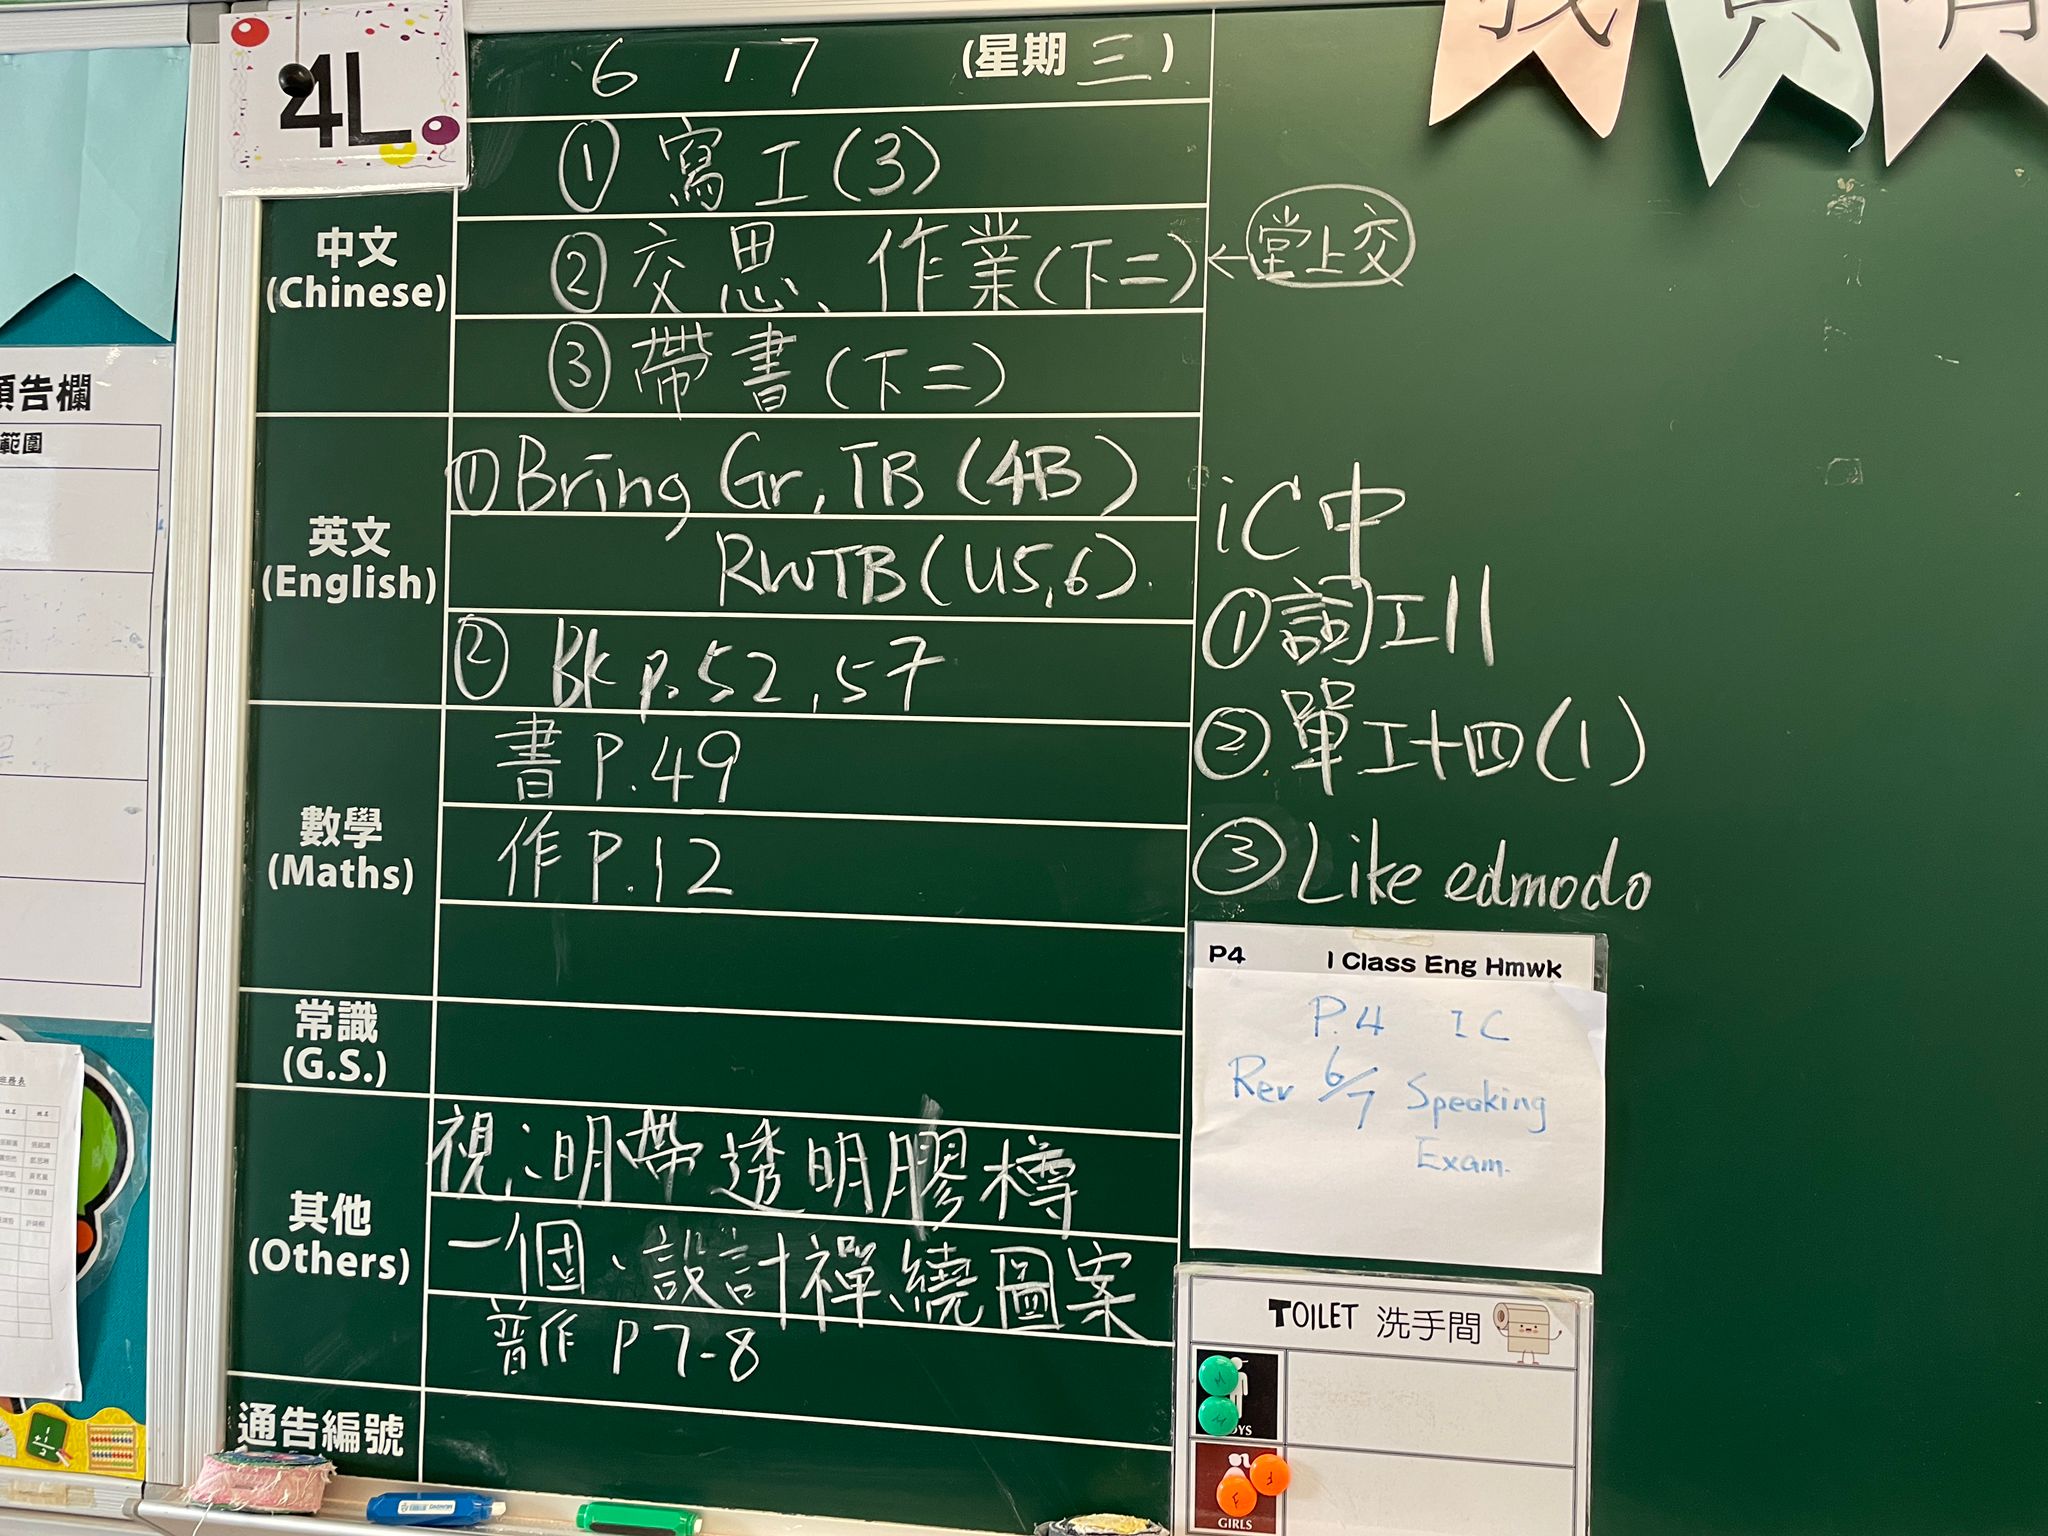 4L
6 17 (星期三)
中文
(Chinese)
① 寫工(3)
② 交思、作業(下二) ← 堂上交
③ 帶書(下二)
英文
(English)
① Bring Gr, TB (4B)
RWTB (U5,6).
② BK p.52,57
數學
(Maths)
書 P.49
作 P.12
常識
(G.S.)
其他
(Others)
視:明帶透明膠樽
一個、設計禪繞圖案
普作 P 7-8
通告編號
iC中
① 詞工11
② 單工十四(1)
③ Like edmodo
P4 I Class Eng Hmwk
P.4 IC
Rev 6/7 Speaking
Exam.
TOILET 洗手間
GIRLS
告欄
範圍